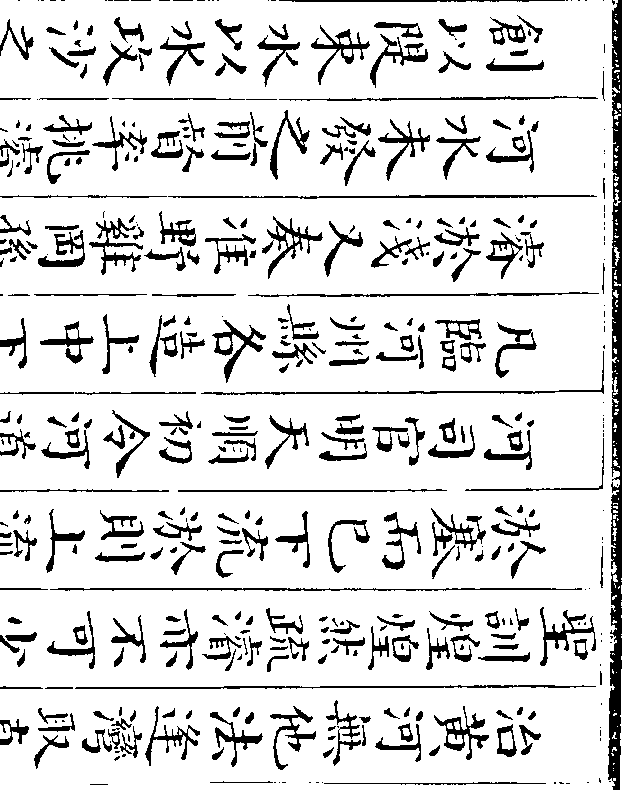 治黄河無他法逢灣取直
聖訓煌煌然疏濬亦不可少
淤塞而已下流淤則上流
河司官明天順初令河道
凡臨河州縣各造上中下
濬淤淺又奏准野雞岡孫
河水未發之前督率挑濬
創以隄束水以水攻沙之